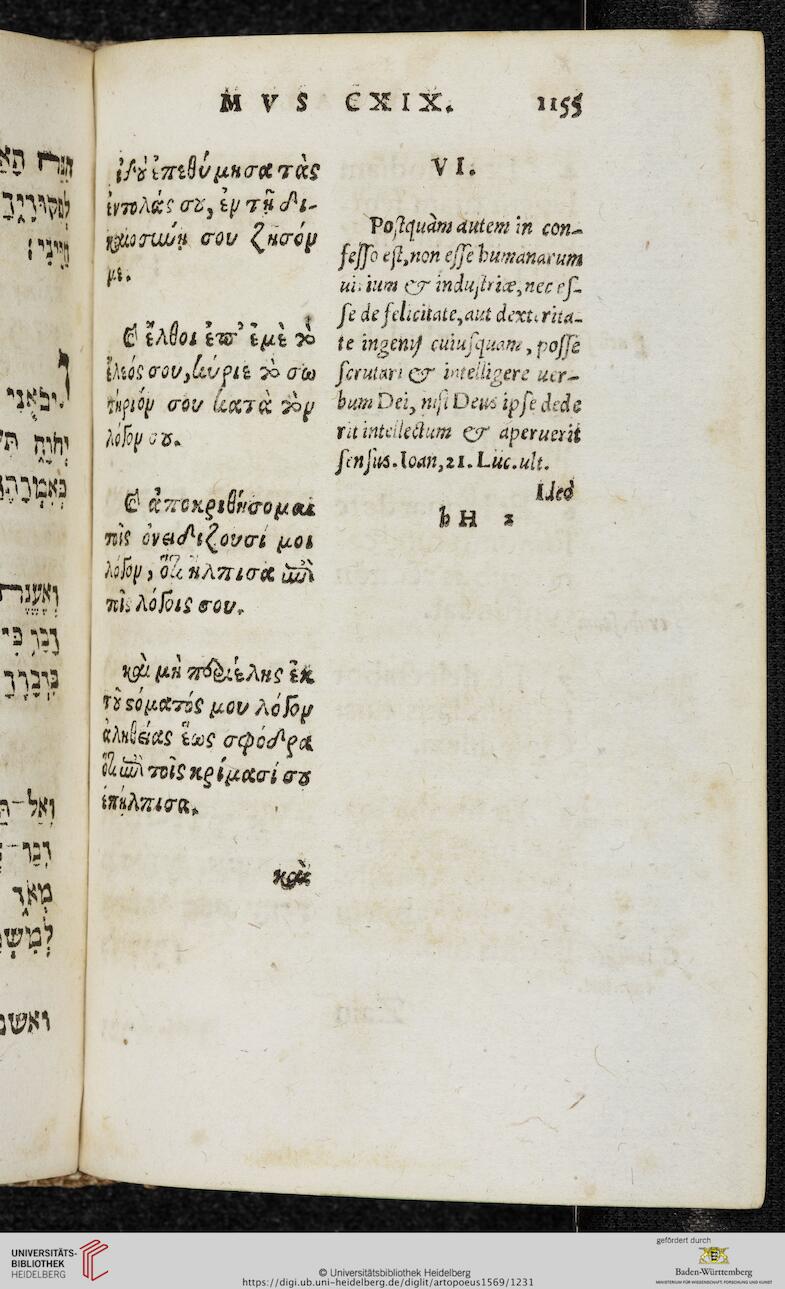 MVS CXIX. 1155
ἰδοὺ ἐπεθύμησα τὰς
ἐντολάς σου, ἐν τῇ δι-
καιοσύνῃ σου ζῆσόν
με.
Καὶ ἔλθοι ἐπ' ἐμὲ τὸ
ἔλεός σου, κύριε τὸ σω
τήριόν σου κατὰ τὸν
λόγον σου.
Καὶ ἀποκριθήσομαι
τοῖς ὀνειδίζουσί μοι
λόγον, ὅτι ἤλπισα ἐπὶ
τοῖς λόγοις σου.
καὶ μὴ περιέλῃς ἐκ
τοῦ στόματός μου λόγον
ἀληθείας ἕως σφόδρα
ὅτι ἐπὶ τοῖς κρίμασί σου
ἐπήλπισα.
καὶ
VI.
Postquàm autem in con-
fesso est, non esse humanarum
uirium & industriæ, nec es-
se de felicitate, aut dexterita-
te ingenij cuiusquam, posse
scrutari & intelligere uer-
bum Dei, nisi Deus ipse dede
rit intellectum & aperuerit
sensus. Ioan, 21. Luc. ult.
Ideò
h H 2
UNIVERSITÄTS-
BIBLIOTHEK
HEIDELBERG
© Universitätsbibliothek Heidelberg
https://digi.ub.uni-heidelberg.de/diglit/artopoeus1569/1231
gefördert durch
Baden-Württemberg
MINISTERIUM FÜR WISSENSCHAFT, FORSCHUNG UND KUNST